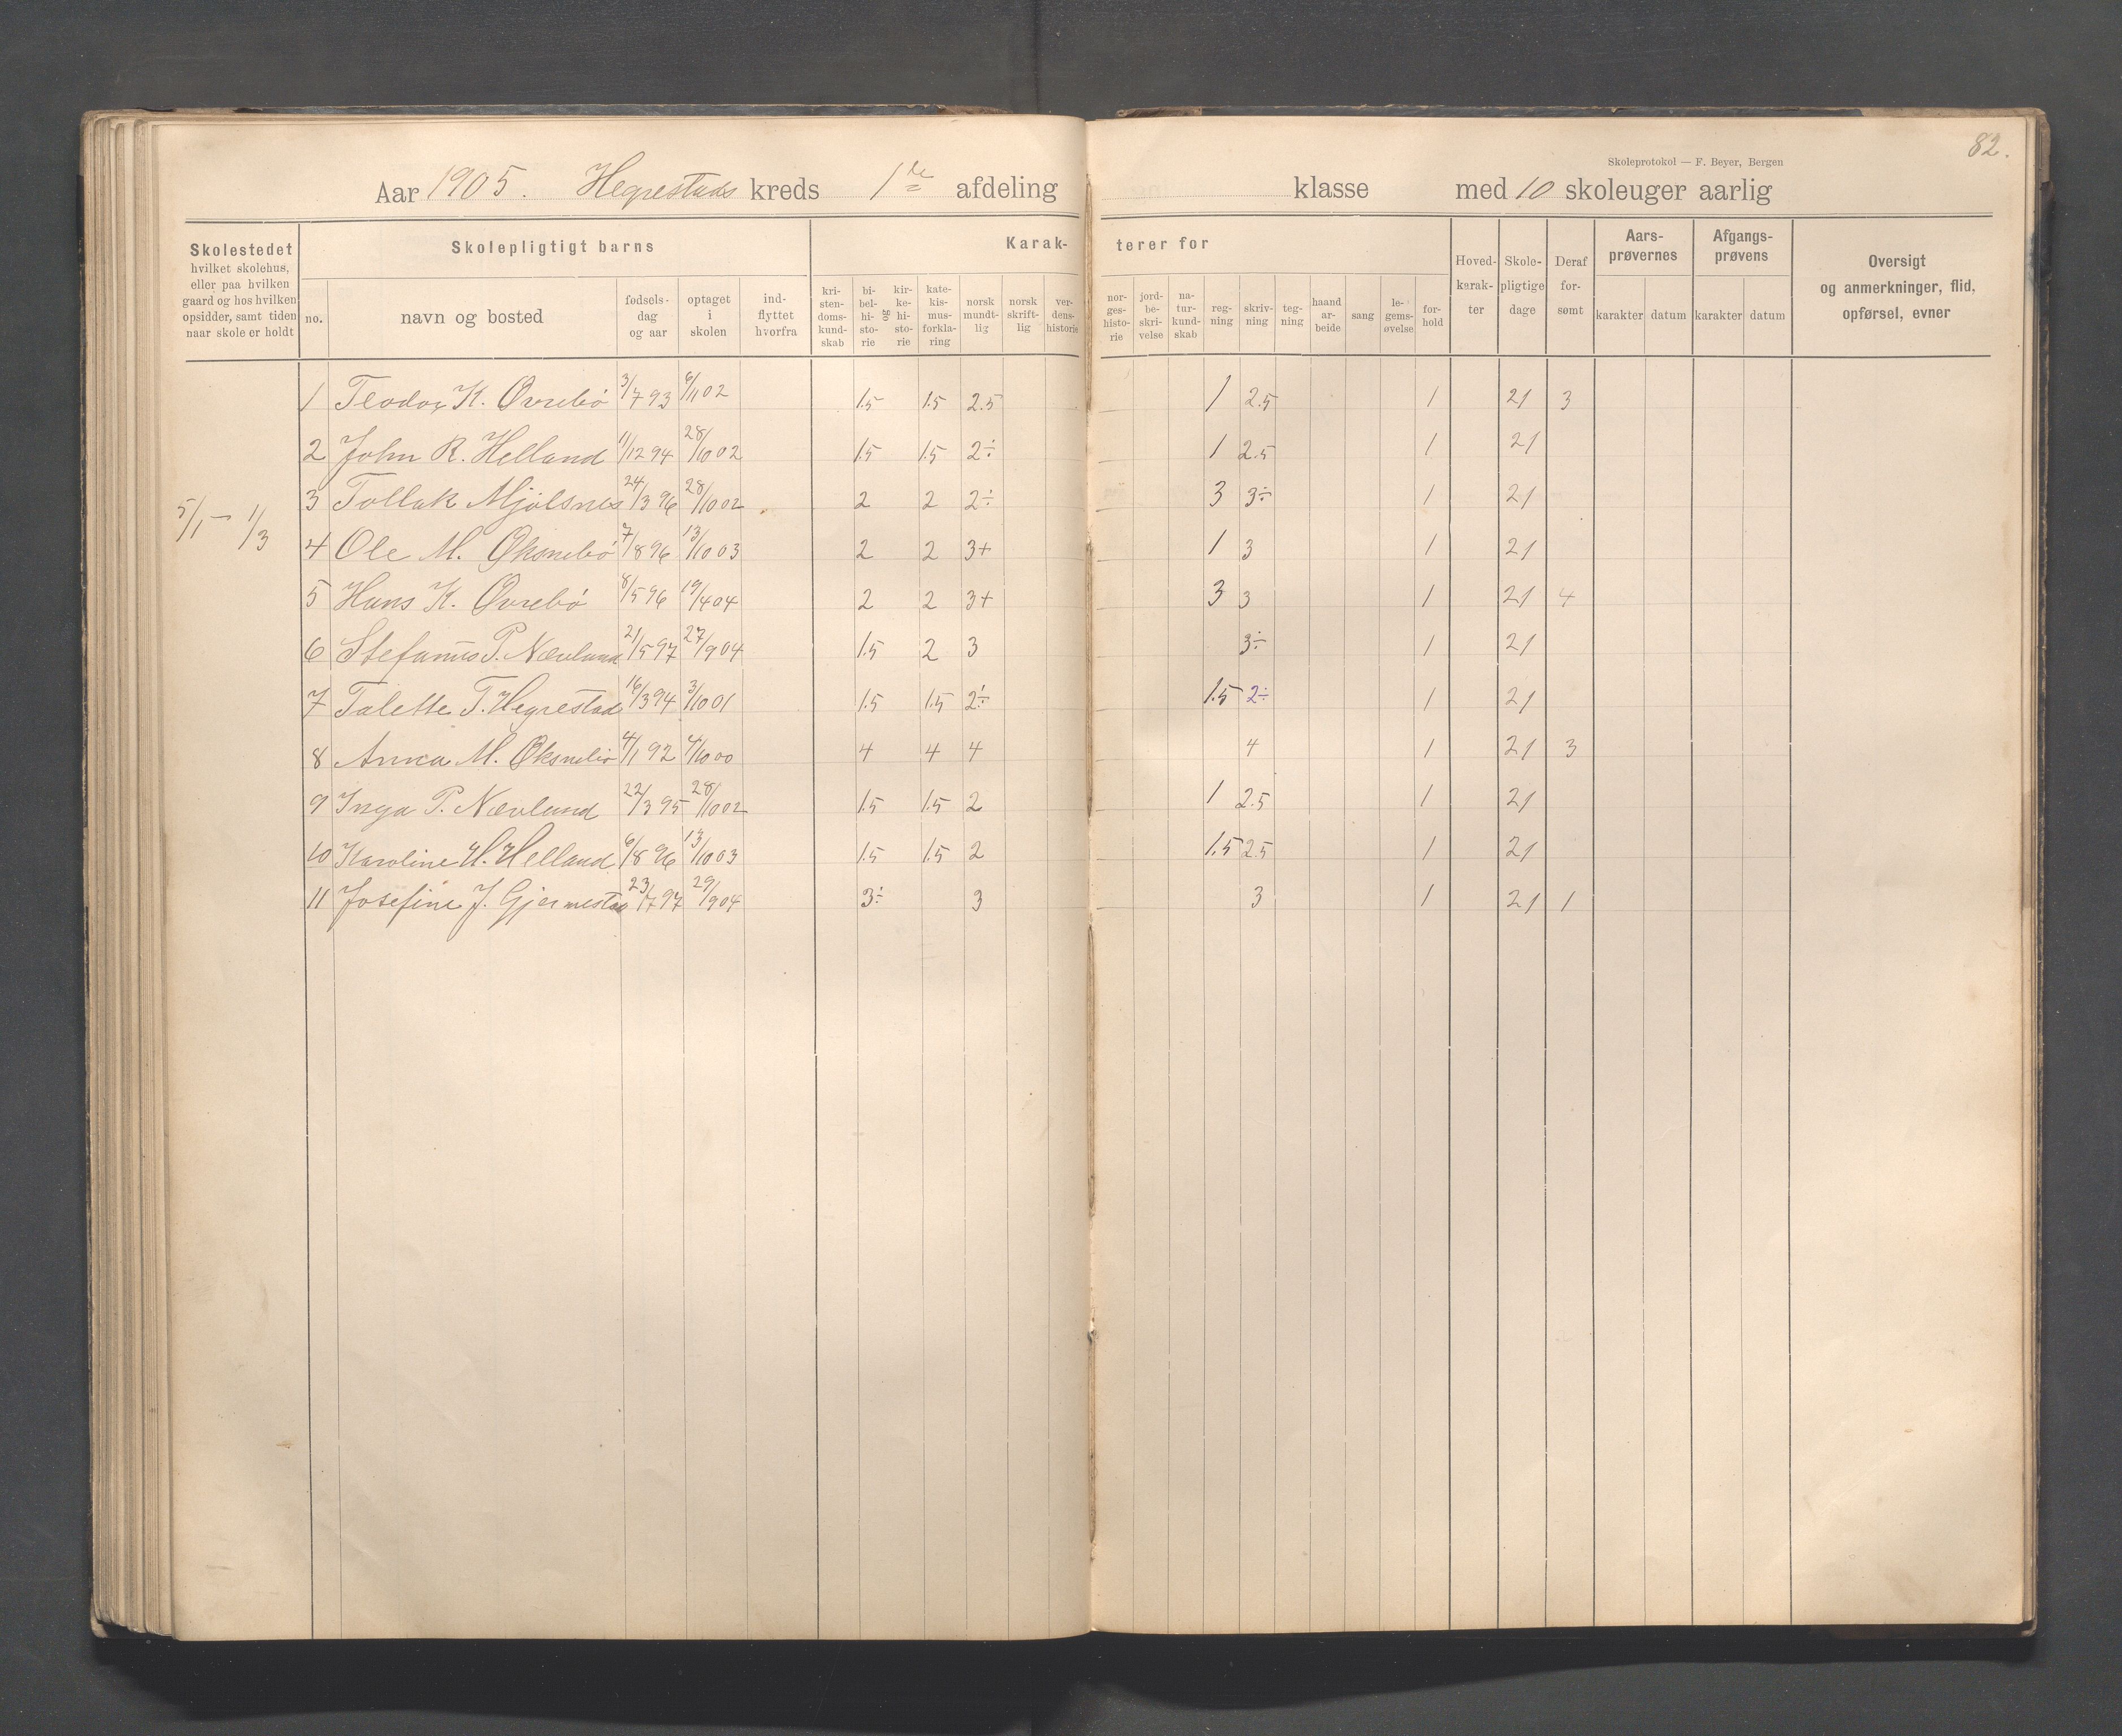 82.
Skoleprotokol — F. Beyer, Bergen
Aar 1905. Hegrestads kreds 1ste afdeling klasse med 10 skoleuger aarlig
Skolestedet hvilket skolehus, eller paa hvilken gaard og hos hvilken opsidder, samt tiden naar skole er holdt
Skolepligtigt barns
Karakterer for
no.
navn og bosted
fødselsdag og aar
optaget i skolen
indflyttet hvorfra
kristendomskundskab
bibelhistorie og kirkehistorie
katekismusforklaring
norsk mundtlig
norsk skriftlig
verdenshistorie
norgeshistorie
jordbeskrivelse
naturkundskab
regning
skrivning
tegning
haandarbeide
sang
legemsøvelse
forhold
Hovedkarakter
Skolepligtige dage
Deraf forsømt
Aarsprøvernes
karakter datum
Afgangsprøvens
karakter datum
Oversigt og anmerkninger, flid, opførsel, evner
5/1 — 1/3
1 Teodor K. Øvrebö 3/7 93 6/11 02 1.5 1.5 2.5 1 2.5 1 21 3
2 John R. Helland 11/12 94 28/10 02 1.5 1.5 2÷ 1 2.5 1 21
3 Tollak Mjölsnes 24/3 96 28/10 02 2 2 2÷ 3 3÷ 1 21
4 Ole M. Øksnebö 7/8 96 13/10 03 2 2 3+ 1 3 1 21
5 Hans K. Øvrebö 8/5 96 19/4 04 2 2 3+ 3 3 1 21 4
6 Stefanus P. Nævland 21/5 97 27/9 04 1.5 2 3 3÷ 1 21
7 Talette T. Hegrestad 16/3 94 3/10 01 1.5 1.5 2÷ 1.5 2÷ 1 21
8 Anna M. Øksnebö 4/1 92 4/10 00 4 4 4 4 1 21 3
9 Inga P. Nævland 22/3 95 28/10 02 1.5 1.5 2 1 2.5 1 21
10 Karoline H. Helland 6/8 96 13/10 03 1.5 1.5 2 1.5 2.5 1 21
11 Josefine J. Gjermestad 23/7 97 29/9 04 3÷ 3 3 1 21 1